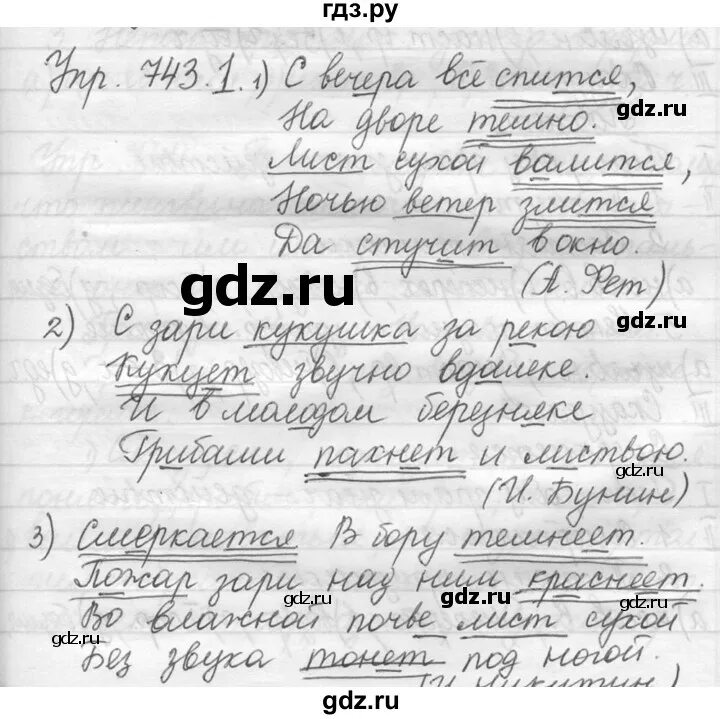 гдз.ру
Упр. 743. 1. 1) С вечера всё спится,
На дворе темно.
Лист сухой валится,
Ночью ветер злится
Да стучит в окно.
gdz.ru
gdz.ru
(А. Фет)
2) С зари кукушка за рекою
gdz.ru
Кукует звучно вдалеке.
И в молодом березняке
Грибами пахнет и листвою.
gdz.ru
(И. Бунин)
3) Смеркается В бору темнеет.
Пожар зари над ним краснеет.
gdz.ru
gdz.ru
gdz.ru
Во влажной почве лист сухой
gdz.ru
Без звука тонет под ногой.
(И. Никитин)
gdz.ru